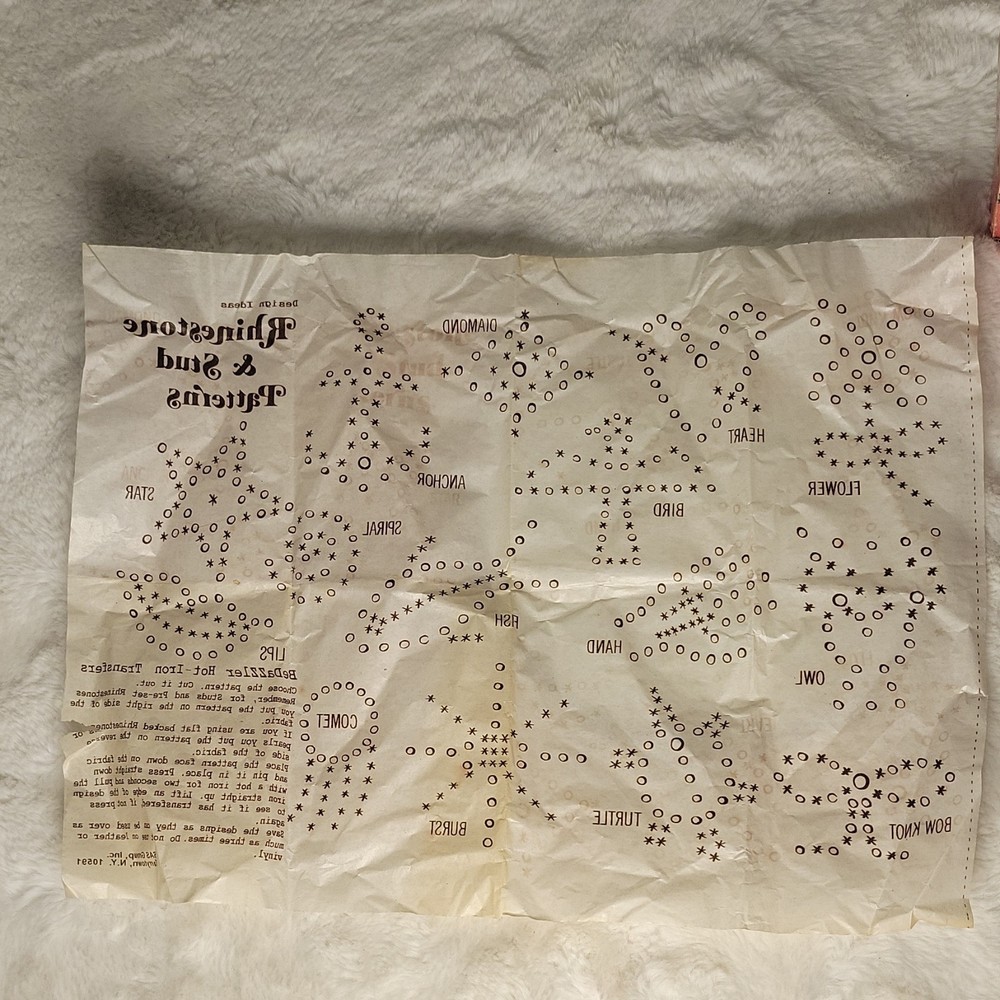 Design Ideas
Rhinestone
& Stud
Patterns
DIAMOND
HEART
FLOWER
ANCHOR
STAR
SPIRAL
BIRD
FISH
HAND
OWL
LIPS
COMET
BURST
TURTLE
BOW KNOT
BeDaZZler Hot-Iron Transfers
Choose the pattern. Cut it out.
Remember, for Studs and Pre-set Rhinestones
you put the pattern on the right side of the
fabric.
If you are using flat backed Rhinestones or
pearls you put the pattern on the reverse
side of the fabric.
Place the pattern face down on the fabric
and pin it in place. Press straight down
with a hot iron for two seconds and pull the
iron straight up. Lift an edge of the design
to see if it has transfered if not press
again.
Save the designs as they can be used over as
much as three times. Do not use on leather or
vinyl.
Group, Inc.
Tarrytown, N.Y. 10591